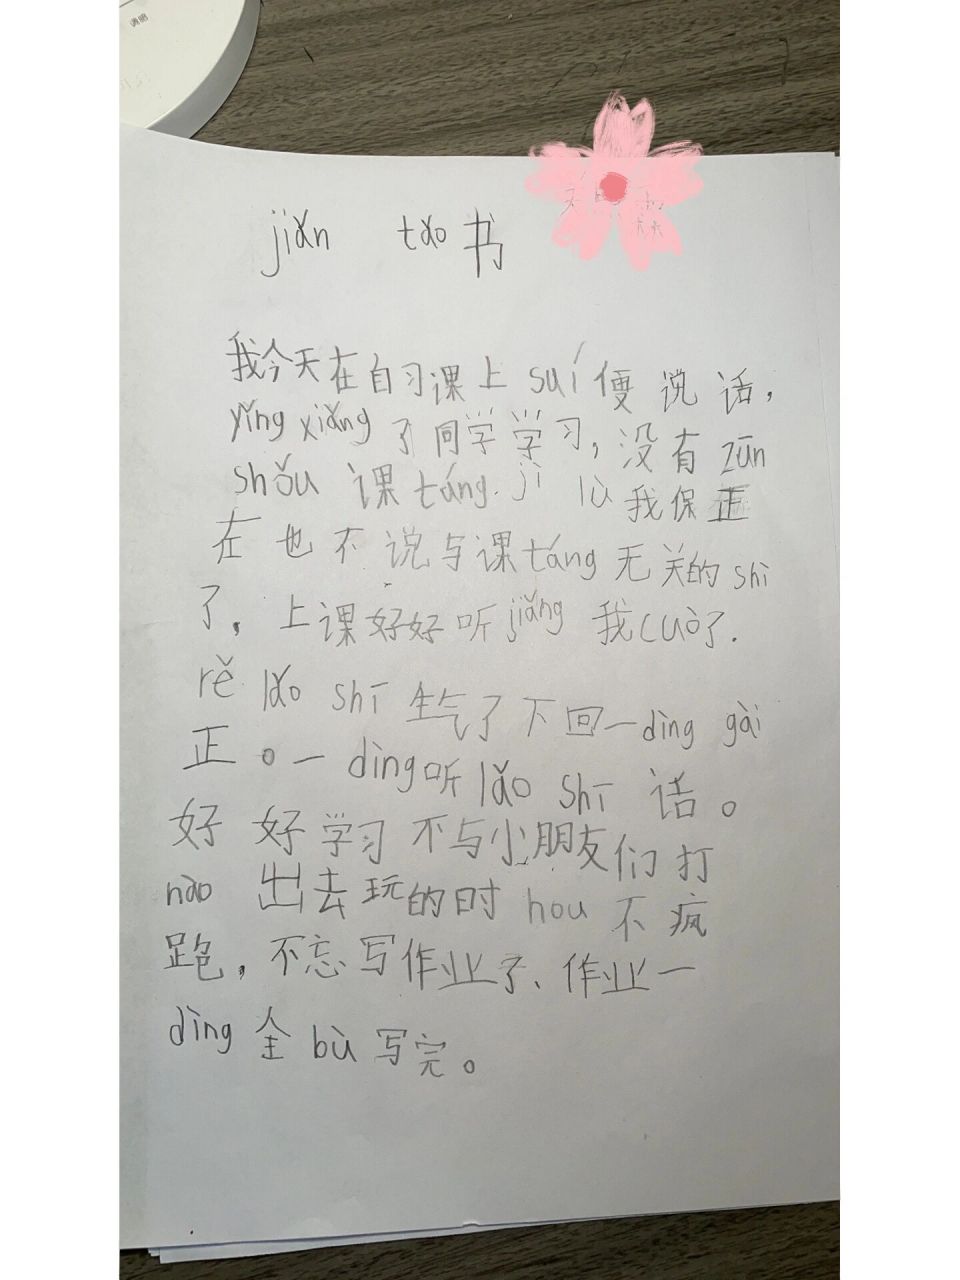 jiǎn tǎo书
我今天在自习课上suí便说话,
yǐng xiǎng了同学学习,没有zūn
shǒu 课táng.jì lù我保正
在也不说与课táng无关的shì
了,上课好好听jiǎng 我cuò了.
rě lǎo shī 生气了下回一dìng gǎi
正。一dìng听lǎo shī 话。
好好学习不与小朋友们打
nào 出去玩的时hou不疯
跑,不忘写作业了、作业一
dìng全bù写完。